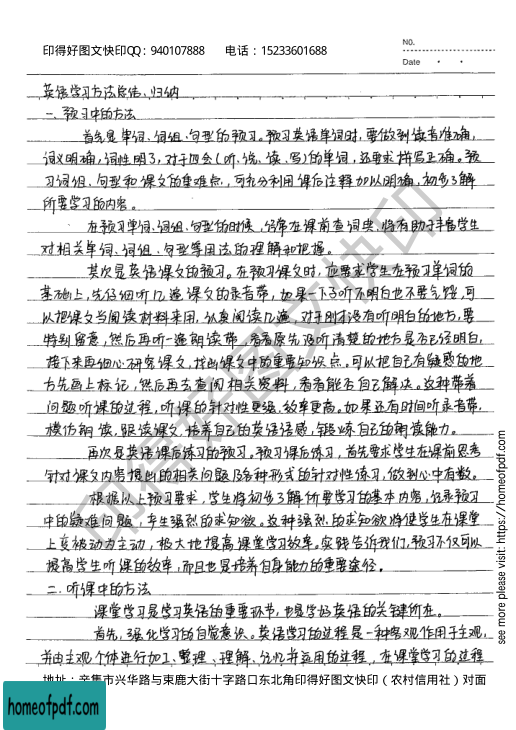 印得好图文快印QQ：940107888 电话：15233601688
NO.
Date
英语学习方法总结、归纳
一、预习中的方法
首先是单词、词组、句型的预习。预习英语单词时，要做到读音准确，
词义明确，词性明了，对于四会（听、说、读、写）的单词，还要求拼写正确。预
习词组、句型和课文的重难点，可充分利用课后注释加以明确，初步了解
所要学习的内容。
在预习单词、词组、句型的时候，经常在课前查词典，将有助于丰富学生
对相关单词、词组、句型等用法的理解和把握。
其次是英语课文的预习。在预习课文时，应要求学生在预习单词的
基础上，先仔细听几遍课文的录音带，如果一下子听不明白也不要气馁，可
以把课文当阅读材料来用，认真阅读几遍，对于刚才没有听明白的地方，要
特别留意，然后再听一遍朗读带，看看原先没听清楚的地方是否已经明白，
接下来再细心研究课文，找出课文中的重要知识点。可以把自己有疑惑的地
方先画上标记，然后再去查阅相关资料，看看能否自己解决。这种带着
问题听课的过程，听课的针对性更强，效率更高。如果还有时间听录音带，
模仿朗读，跟读课文，培养自己的英语语感，锻炼自己的朗读能力。
再次是英语课后练习的预习。预习课后练习，首先要求学生在课前思考
针对课文内容提出的相关问题及各种形式的针对性练习，做到心中有数。
根据以上预习要求，学生将初步了解所要学习的基本内容，记录预习
中的疑难问题，产生强烈的求知欲。这种强烈的求知欲将使学生在课堂
上变被动为主动，极大地提高课堂学习效率。实践告诉我们，预习不仅可以
提高学生听课的效率，而且也是培养自身能力的重要途径。
二、听课中的方法
课堂学习是学习英语的重要环节，也是学好英语的关键所在。
首先，强化学习的自觉意识。英语学习的过程是一种客观作用于主观，
并由主观个体进行加工、整理、理解、记忆并运用的过程，在课堂学习的过程
地址：辛集市兴华路与束鹿大街十字路口东北角印得好图文快印（农村信用社）对面
印得好图文快印
see more please visit: https://homeofpdf.com
homeofpdf.com